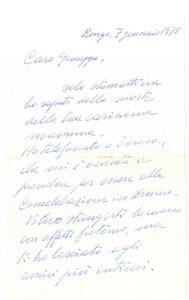 Rongo, 7 gennaio 1978
Caro Giuseppe,
solo stamattina
ho saputo della morte
della tua carissima
mamma.
Ho telefonato a
che mi è venuta a
prendere per essere alla
in
Volevo stringerti la mano
con affetto fraterno, ma
ti ho lasciato agli
amici più intimi.